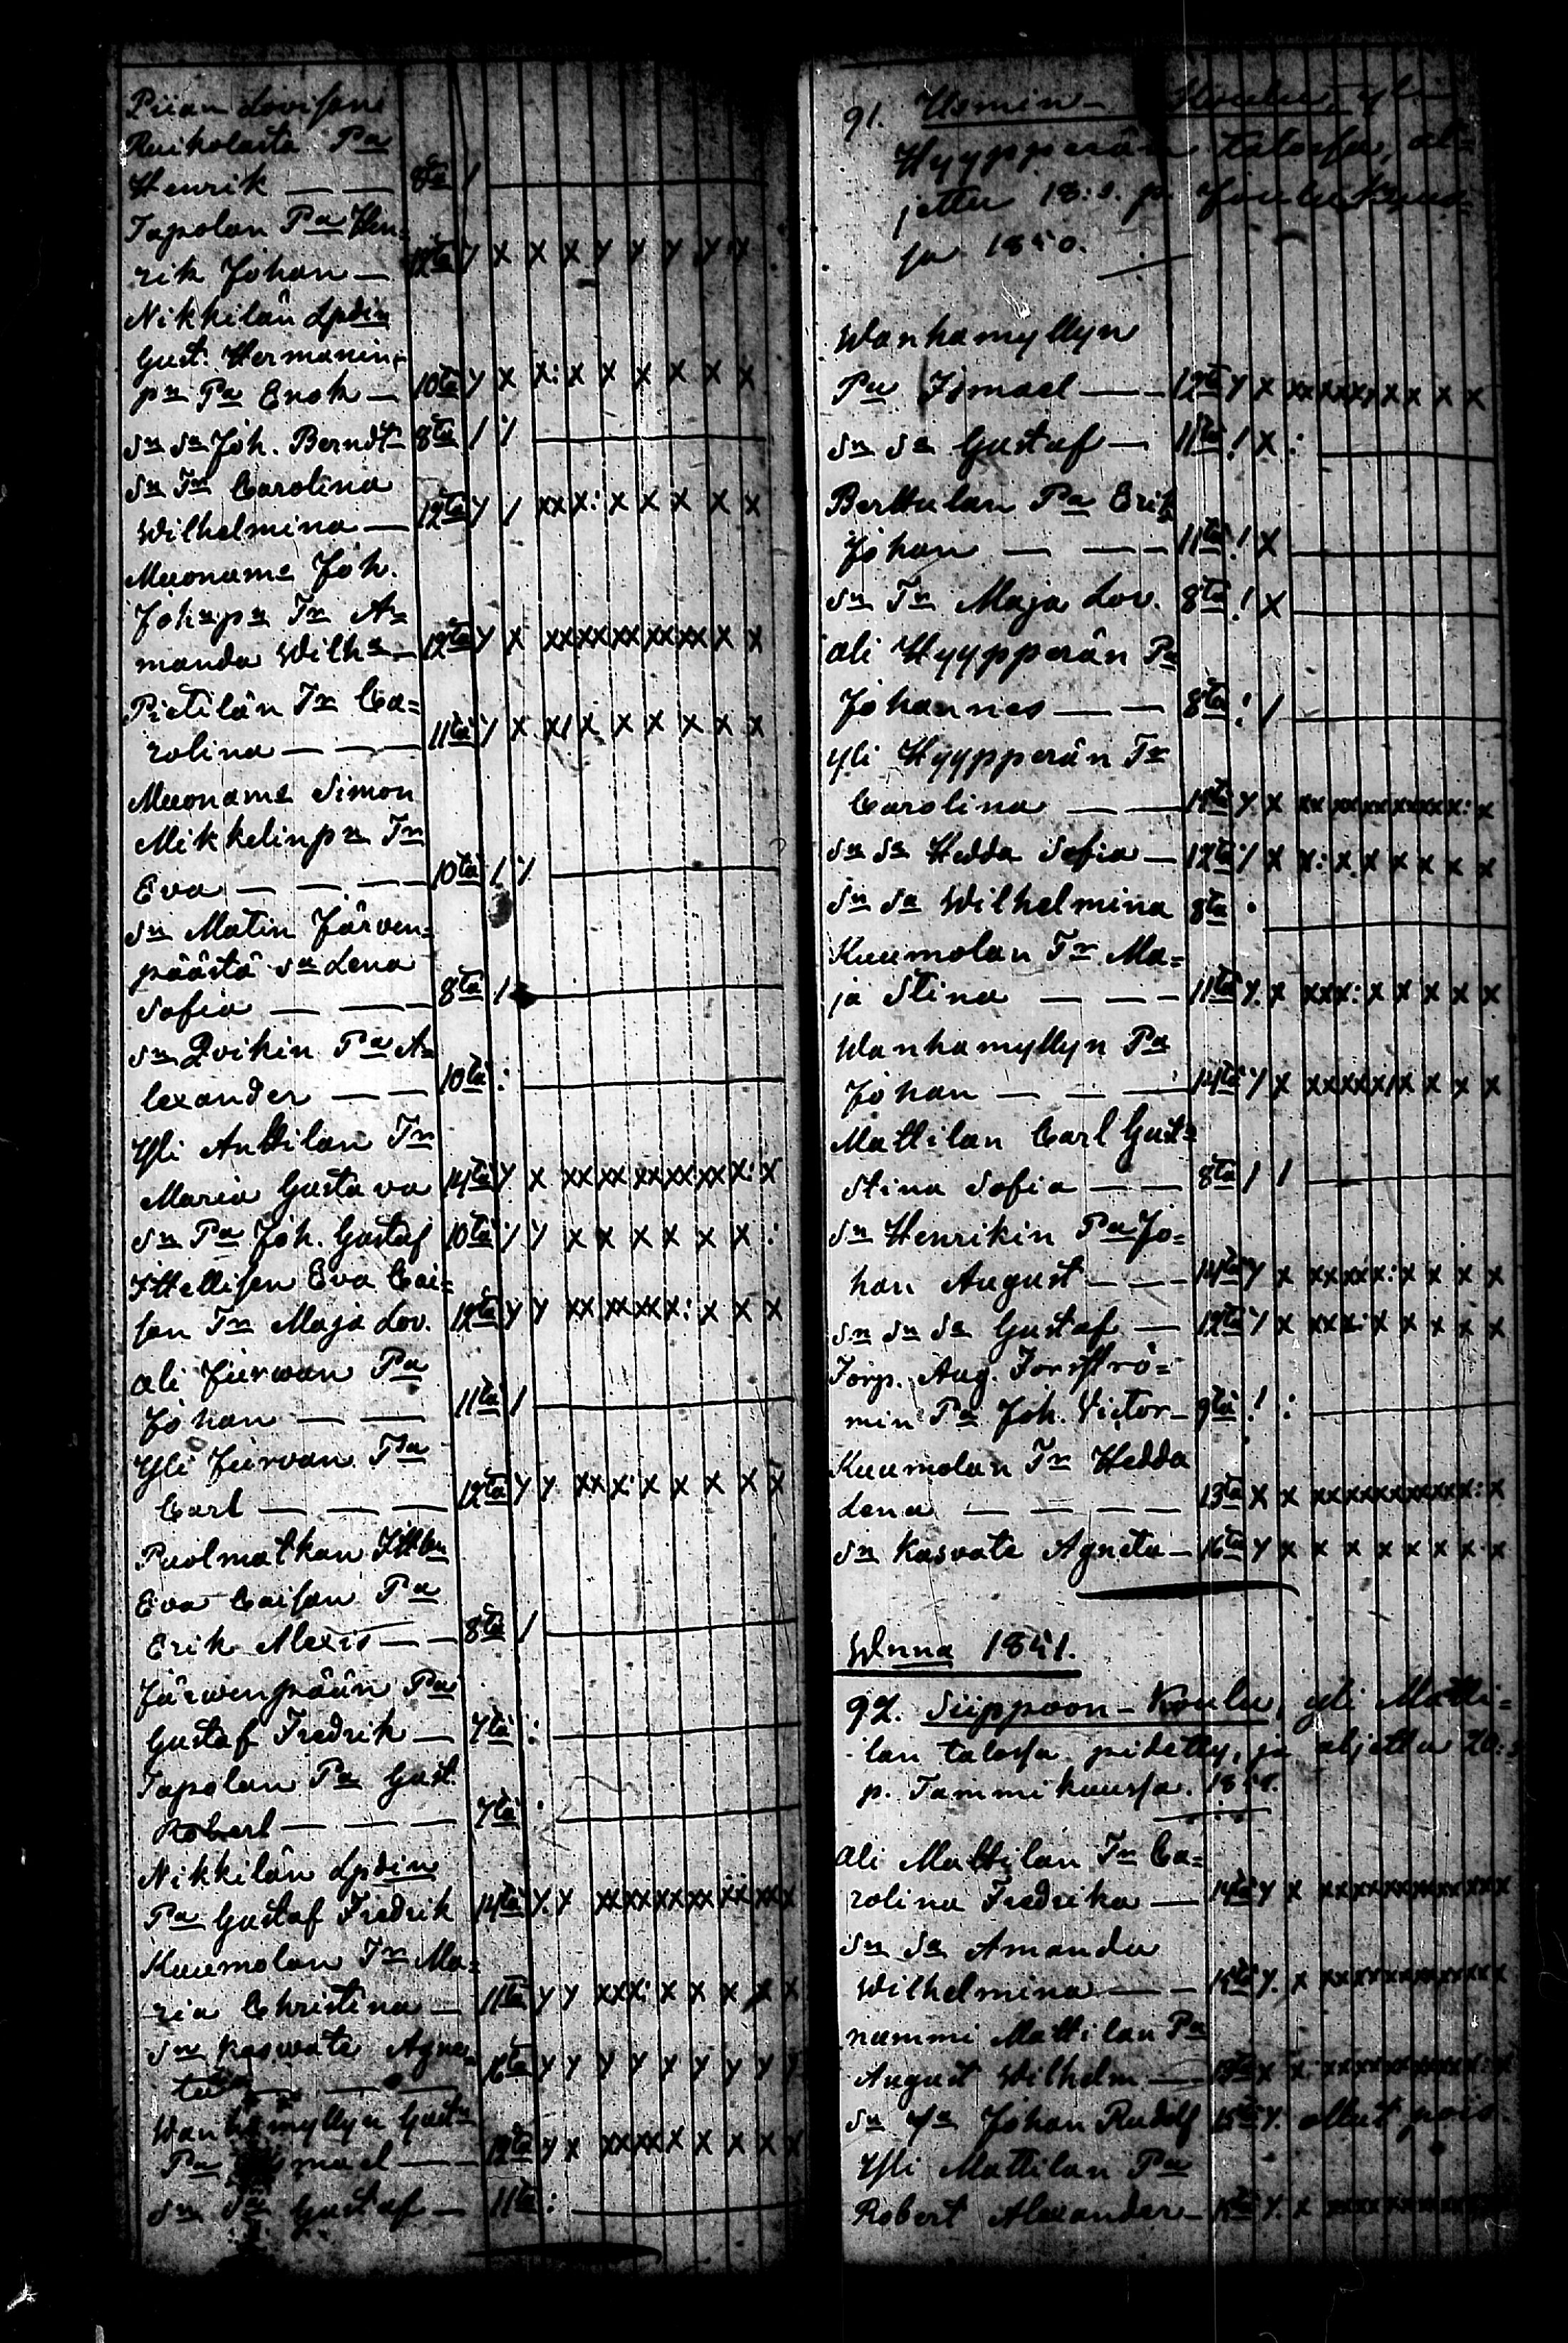 Piian Lovisan
Ruikolasta Pa
Henrik — — 8ta /
Tapolan Pa Hen=
rik Johan — 12ta y x x x y y y y
Nikkilän Lpdin
Gust. Hermanin=
pn Pa Enok — 10ta y x x: x x x x x x
Sn Sa Joh. Berndt 8ta / y
Sn Tr Carolina
Wilhelmina — 12ta y / xx x: x x x x x
Muonams Joh.
Johnpn Tr A=
manda Wilhna — 12ta y x xx xx xx xx xx x x
Pietilän Tr Ca=
rolina — — 11ta y x x/ x x x x x x
Muonams Simon
Mikkelinpn Tr
Eva — — — 10ta / y
Sn Matin Järven=
päästä Sa Lena
Sofia — — 8ta /
Sn Qvikin Pa A=
lexander — — 10ta :
Yli Anttilan Tr
Maria Gustava 14ta y x xx xx xx xx xx x: x
Sn Pa Joh. Gustaf 10ta y y x x x x x x :
Ittellisen Eva Cai=
san Tr Maja Lov. 12ta y y xx xx xx x: x x x
Ali Jurwan Pa
Johan — — 11ta /
Yli Jurvan Pa
Carl — — 12ta y y xx x: x x x x x
Puolmatkan Ittlen
Eva Caisan Pa
Erik Alexis — — 8ta /
Järwenpään Pa
Gustaf Fredrik — 7ta :
Tapolan Pa Gust.
Robert — — — 7ta :
Nikkilän Lpdin
Pa Gustaf Fredrik 14ta y x xx xx xx xx xx xx x
Kuumolan Tr Ma=
ria Christina — 11ta y y xx x: x x x x x
Sn kaswate Agne=
ta — — — 16ta y y y y y y y y y
Wanhamyllyn Gustn
Pa mael — — 12ta y x xx xx x x x x x
Sn Sa Gustaf — 11ta :
91. Koulu, yli
Hyypperän talossa, al=
jettu 18:s. p. Joulukuus=
sa 1850.
Wanhamyllyn
Pa Ismael — — 12ta y x xx xx xx x x x x x
Sn Sa Gustaf — 11ta ! x :
Berttulan Pa Erik
Johan — — — 11ta ! x
Sn Tr Maja Lov. 8ta ! x
Ali Hyypperän Pa
Johannes — — 8ta ! /
Yli Hyypperän Tr
Carolina — — 14ta y. x xx xx xx xx xx x: x
Sn Sa Hedda Sofia — 12ta y x x: x x x x x x
Sn Sa Wilhelmina 8ta :
Kuumolan Tr Ma=
ja Stina — — — 11ta y. x xx x: x x x x x
Wanhamyllyn Pa
Johan — — — 14ta y x xx xx x/ x x x x
Mattilan Carl Gust=
Stina Sofia — — 8ta / /
Sn Henrikin Pa Jo=
han August — — 14ta y x xx xx x: x x x x
Sn Sn Sa Gustaf — 12ta y x xx x: x x x x x
Torp. Aug. Forsströ=
min Pa Joh. Victor — 9ta ! :
Kuumolan Tr Hedda
Lena — — — — 13ta x x xx xx xx xx xx x: x
Sn Kasvate Agneta — 16ta y x x x x x x x x
Wnna 1851.
92. Siippoon-Koulu, yli Matti=
lan talossa pidetty, ja aljettu 20:s
p. Tammikuussa. 1851.
Ali Mattilan Tr Ca=
rolina Fredrika — 14ta y x xx xx xx xx xx xx x
Sn Sa Amanda
Wilhelmina — — 15ta y. x xx xx xx xx xx xx x
nummi Mattilan Pa
August Wilhelm — 13ta x x xx xx xx xx xx x: x
Sn Johan Rudolf 15ta y. ollut pois.
Yli Mattilan Pa
Robert Alexander — 15ta y. x xx xx xx xx xx